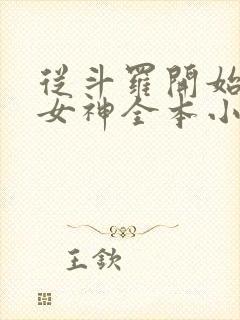 從斗羅開始
女神全本小
王欽